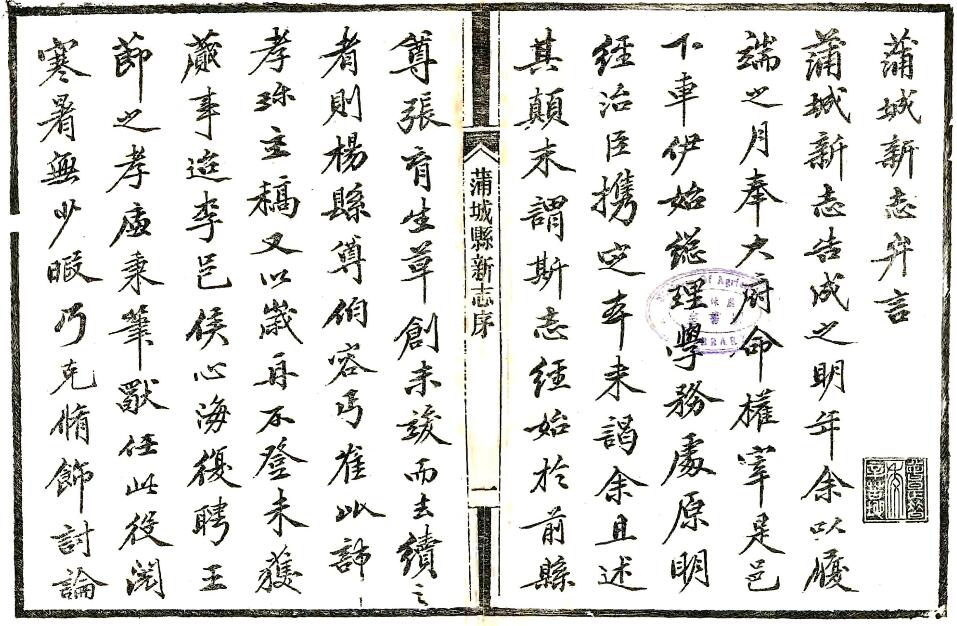 蒲城新志弁言
蒲城新志告成之明年余以履
端之月奉大府命權宰是邑
下車伊始總理學務處原明
經治臣攜 本来謁余且述
其顛末謂斯志經始於前縣
蒲城縣新志序
一
尊張育生草創未竣而去續之
者則楊縣尊伯容馬崔此
孝珎主稿又以歲再不登未獲
蕆事迨李邑侯心海復聘王
莭之孝廉秉筆獸任此役閲
寒暑無少暇乃克脩飾討論